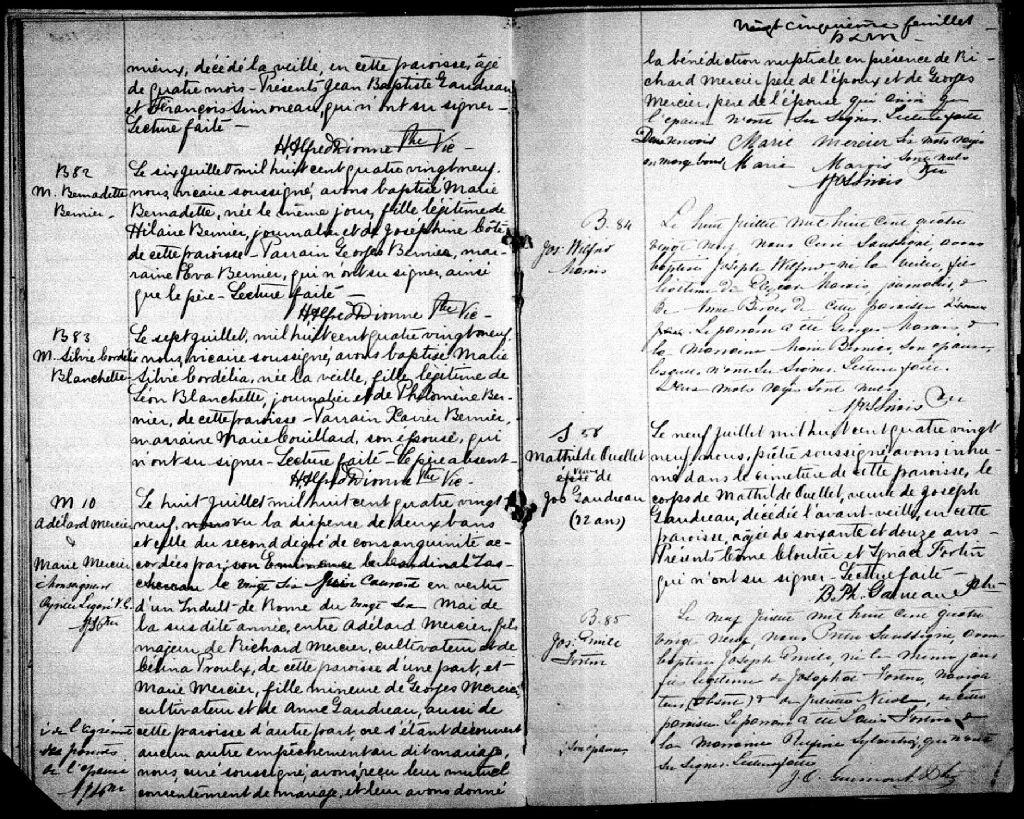 mieux, décédé la veille, en cette paroisse, âgé
de quatre mois - Présents Jean Baptiste Gaudreau
et François Simoneau, qui n'ont su signer -
Lecture faite -
H. Alfred Dionne Ptre Vic -
B 82
M. Bernadette
Bernier -
Le six Juillet mil huit cent quatre vingt neuf,
nous, vicaire soussigné, avons baptisé Marie
Bernadette, née le même jour, fille légitime de
Hilaire Bernier, journalier et de Joséphine Côté
de cette paroisse - Parrain Georges Bernier, mar-
raine Eva Bernier, qui n'ont su signer, ainsi
que le père - Lecture faite -
H. Alfred Dionne Ptre Vic -
B 83
M. Silvie Cordélia
Blanchette -
Le sept Juillet, mil huit cent quatre vingt neuf,
nous, vicaire soussigné, avons baptisé Marie
Silvie Cordélia, née la veille, fille légitime de
Léon Blanchette, journalier et de Philomène Ber-
nier, de cette paroisse - Parrain Xavier Bernier,
marraine Marie Couillard, son épouse, qui
n'ont su signer - Lecture faite - Le père absent -
H. Alfred Dionne Ptre Vic -
M 10
Adélard Mercier
&
Marie Mercier
Le huit Juillet mil huit cent quatre vingt
neuf, vu la dispense de deux bans
et celle du second dégré de consanguinité ac-
cordées par son Eminence le Cardinal Tas-
chereau le vingt six Juin Courant en vertu
d'un Indult de Rome du vingt six Mai de
la susdite année, entre Adélard Mercier, fils
majeur de Richard Mercier, cultivateur et de
Célina Proulx, de cette paroisse d'une part, et
Marie Mercier, fille mineure de Georges Mercier,
cultivateur et de Anne Gaudreau, aussi de
cette paroisse d'autre part, ne s'étant découvert
aucun autre empêchement au dit mariage,
nous, curé soussigné, avons reçu leur mutuel
consentement de mariage, et leur avons donné
de l'épouse
Vingt cinquième feuillet
la bénédiction nuptiale en présence de Ri-
chard Mercier père de l'époux et de Georges
Mercier, père de l'épouse qui ainsi que
l'épouse n'ont su signer. Lecture faite
Deux renvois
en marge bons
Marie Mercier
Marie Marois
Six mots rayés
sont nuls
B. 84
Jos. Wilfrid
Marois
Le huit Juillet mil huit cent quatre
vingt neuf nous Curé soussigné, avons
baptisé Joseph Wilfrid né la veille, fils
légitime de Elzéar Marois, journalier, &
de Anne Bérubé de cette paroisse
Le parrain a été Georges Marois, &
la marraine Marie Bernier, son épouse,
lesquels n'ont su signer. Lecture faite.
Deux mots rayés sont nuls
S 58
Mathilde Ouellet
veuve de
Jos Gaudreau
(72 ans)
Le neuf Juillet mil huit cent quatre vingt
neuf, nous, prêtre soussigné, avons inhu-
mé dans le cimetière de cette paroisse, le
corps de Mathilde Ouellet, veuve de Joseph
Gaudreau, décédée l'avant-veille, en cette
paroisse, agée de soixante et douze ans -
Présents Côme Cloutier et Ignace Fortin
qui n'ont su signer - Lecture faite -
B. Ph. Garneau Ptre
B. 85
Jos. Emile
Fortin
Le neuf Juillet mil huit cent quatre
vingt neuf, nous Prêtre soussigné avons
baptisé Joseph Emile, né le même jour
fils légitime de Josaphat Fortin, naviga-
teur (absent) & de Nicole, de cette
paroisse. Le parrain a été Louis Fortin &
la marraine Rufine Sylvestre, qui n'ont
su signer. Lecture faite